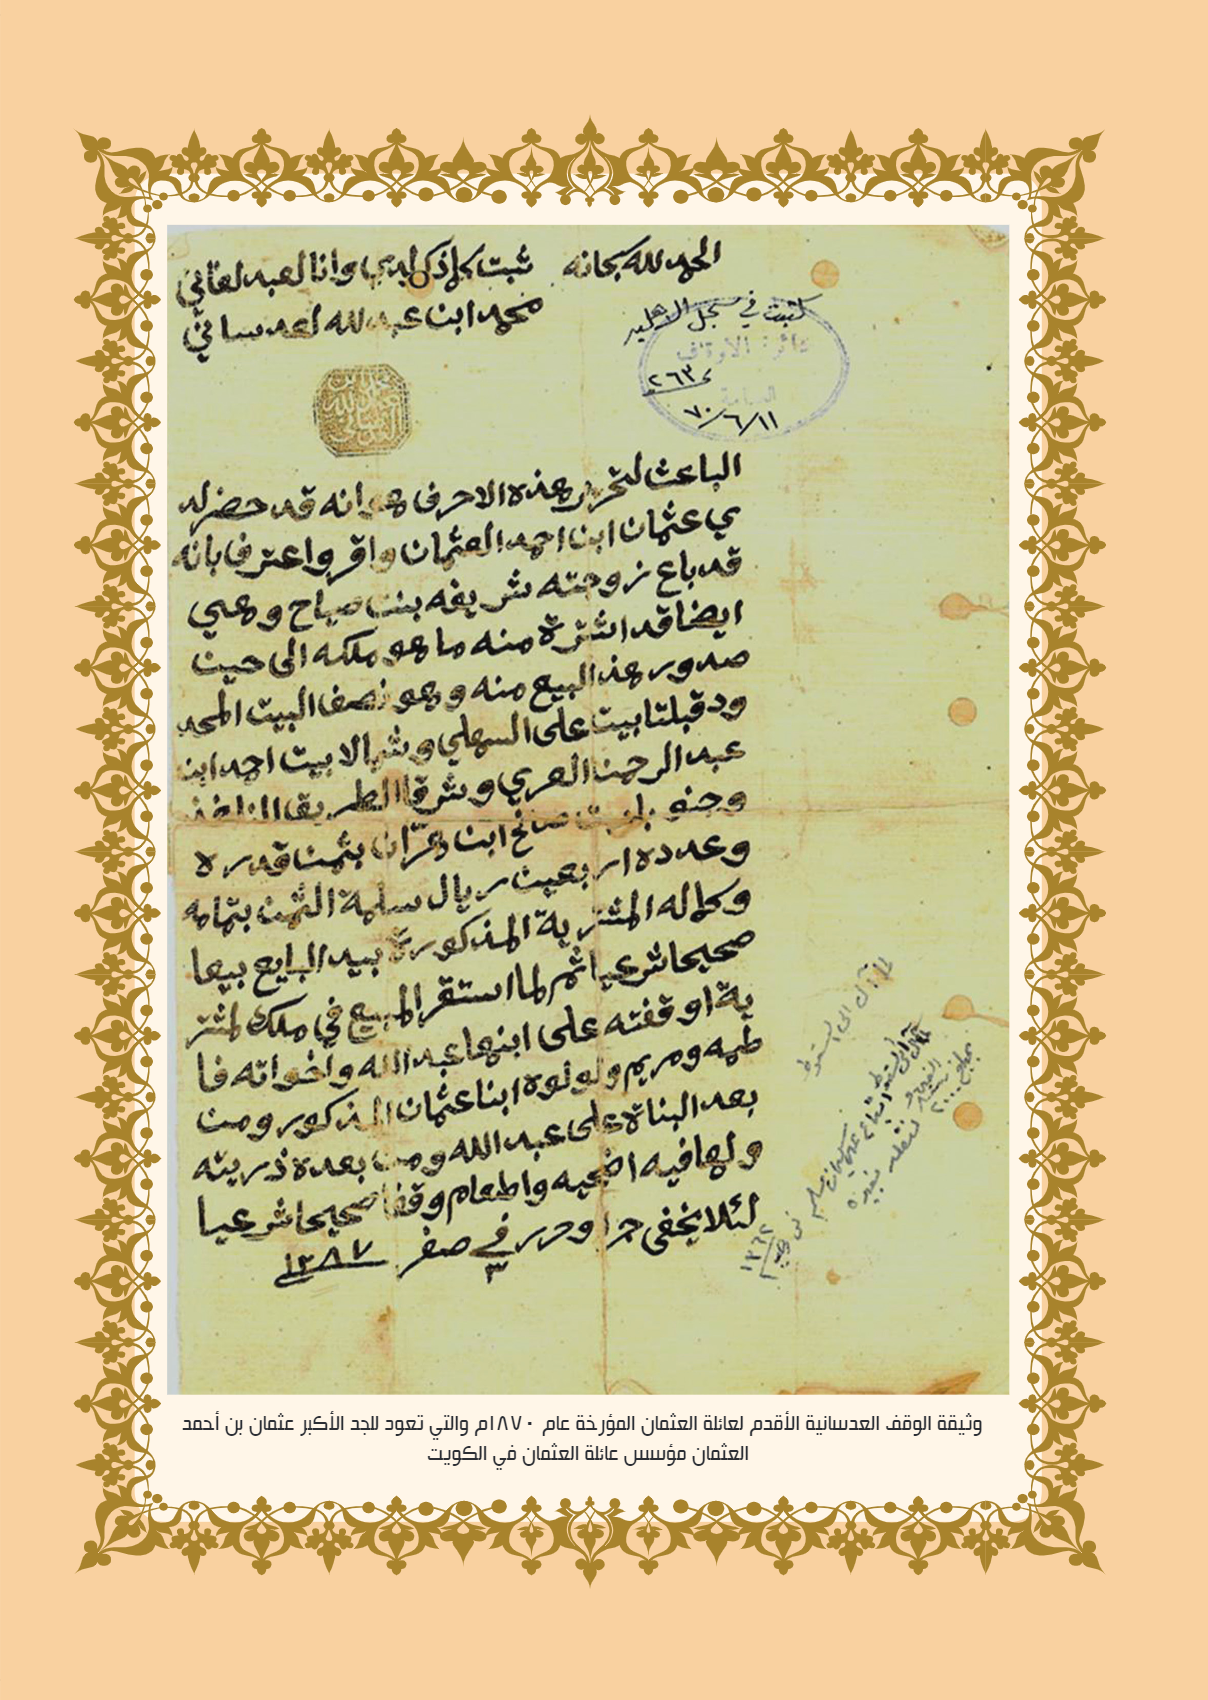 الحمد لله سبحانه
ثبت كلما ذكر لدي وانا العبد لفاني
محمد ابن عبد لله لعدساني
كتبت في سجل
دائرة الاوقاف
العامة
٢٦٣
٧٠/٦/١١
الباعث لتحرير هذه الاحرف هو انه قد حضر لد
ي عثمان ابن احمد العثمان واقر واعترف بانه
قد باع زوجته شريفه بنت صباح وهي
ايضا قد اشترة منه ما هو ملكه الى حين
صدور هذ البيع منه وهو نصف البيت المحد
ود قبلتا بيت على السهلي وشمالا بيت احمد ابن
عبد الرحمن العري وشرقا الطريق النافذ
وجنوبا بيت صالح ابن بثمن قدره
وعدده اربعين ريال سلمة الثمن بتمامه
وكماله المشترية المذكورة بيد البايع بيعا
صحيحا شرعيا ثم لما استقر المبيع في ملك لمشتر
ية اوقفته على ابنها عبد الله واخواته فا
طمه ومريم ولولوه ابنا عثمان المذكور ومن
بعد البناة على عبد الله ومن بعده ذريته
ولها فيه اضحيه واطعام وقفا صحيحا شرعيا
لئلا يخفى جرا وحرر في ٣ صفر ١٢٨٧
وثيقة الوقف العدسانية الأقدم لعائلة العثمان المؤرخة عام ١٨٧٠م والتي تعود للجد الأكبر عثمان بن أحمد
العثمان مؤسس عائلة العثمان في الكويت